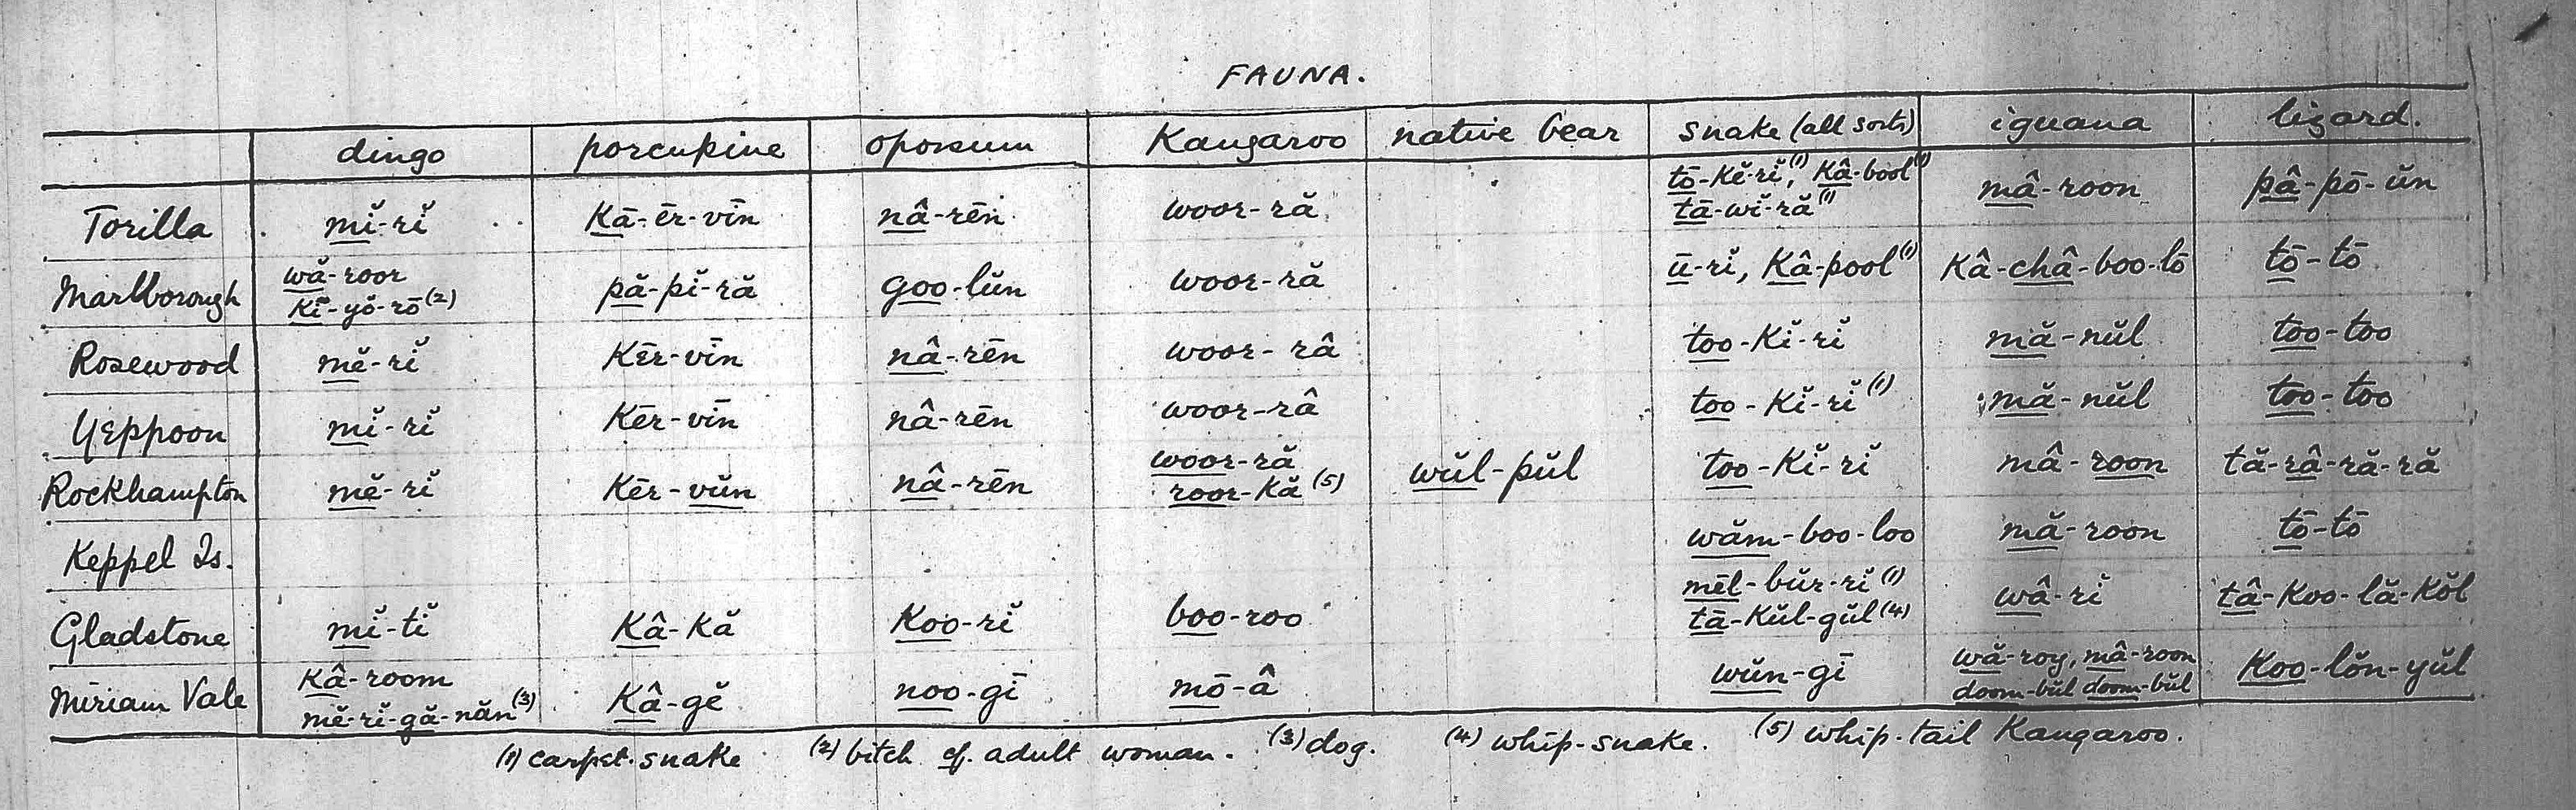 FAUNA.
dingo porcupine opossum Kangaroo native bear snake (all sorts) iguana lizard.
Torilla mĭ-rĭ Kā-ēr-vīn nâ-rēn woor-ră tō-Kĕ-rĭ,⁽¹⁾ Kâ-bool⁽¹⁾ mâ-roon pâ-pō-ŭn
tā-wĭ-ră⁽¹⁾
Marlborough wă-roor pă-pĭ-ră goo-lŭn woor-ră ū-rĭ, Kâ-pool⁽¹⁾ Kâ-châ-boo-lō tō-tō
Kĭ-yŏ-rō⁽²⁾
Rosewood mĕ-rĭ Kēr-vīn nâ-rēn woor-râ too-Kĭ-rĭ mă-nŭl too-too
Yeppoon mĭ-rĭ Kēr-vīn nâ-rēn woor-râ too-Kĭ-rĭ⁽¹⁾ mă-nŭl too-too
Rockhampton mĕ-rĭ Kēr-vŭn nâ-rēn woor-ră wŭl-pŭl too-Kĭ-rĭ mâ-roon tă-râ-ră-ră
roor-Kă⁽⁵⁾
Keppel Is. wăm-boo-loo mă-roon tō-tō
Gladstone mĭ-tĭ Kâ-Kă Koo-rĭ boo-roo mēl-bŭr-rĭ⁽¹⁾ wâ-rĭ tâ-Koo-lă-Kŏl
tā-Kŭl-gŭl⁽⁴⁾
Miriam Vale Kâ-room Kâ-gĕ noo-gī mō-â wŭn-gī wă-roy, mâ-roon Koo-lŏn-yŭl
mĕ-rĭ-gă-năn⁽³⁾ doom-bŭl doom-bŭl
(1) carpet-snake (2) bitch cf. adult woman. (3) dog. (4) whip-snake. (5) whip-tail Kangaroo.